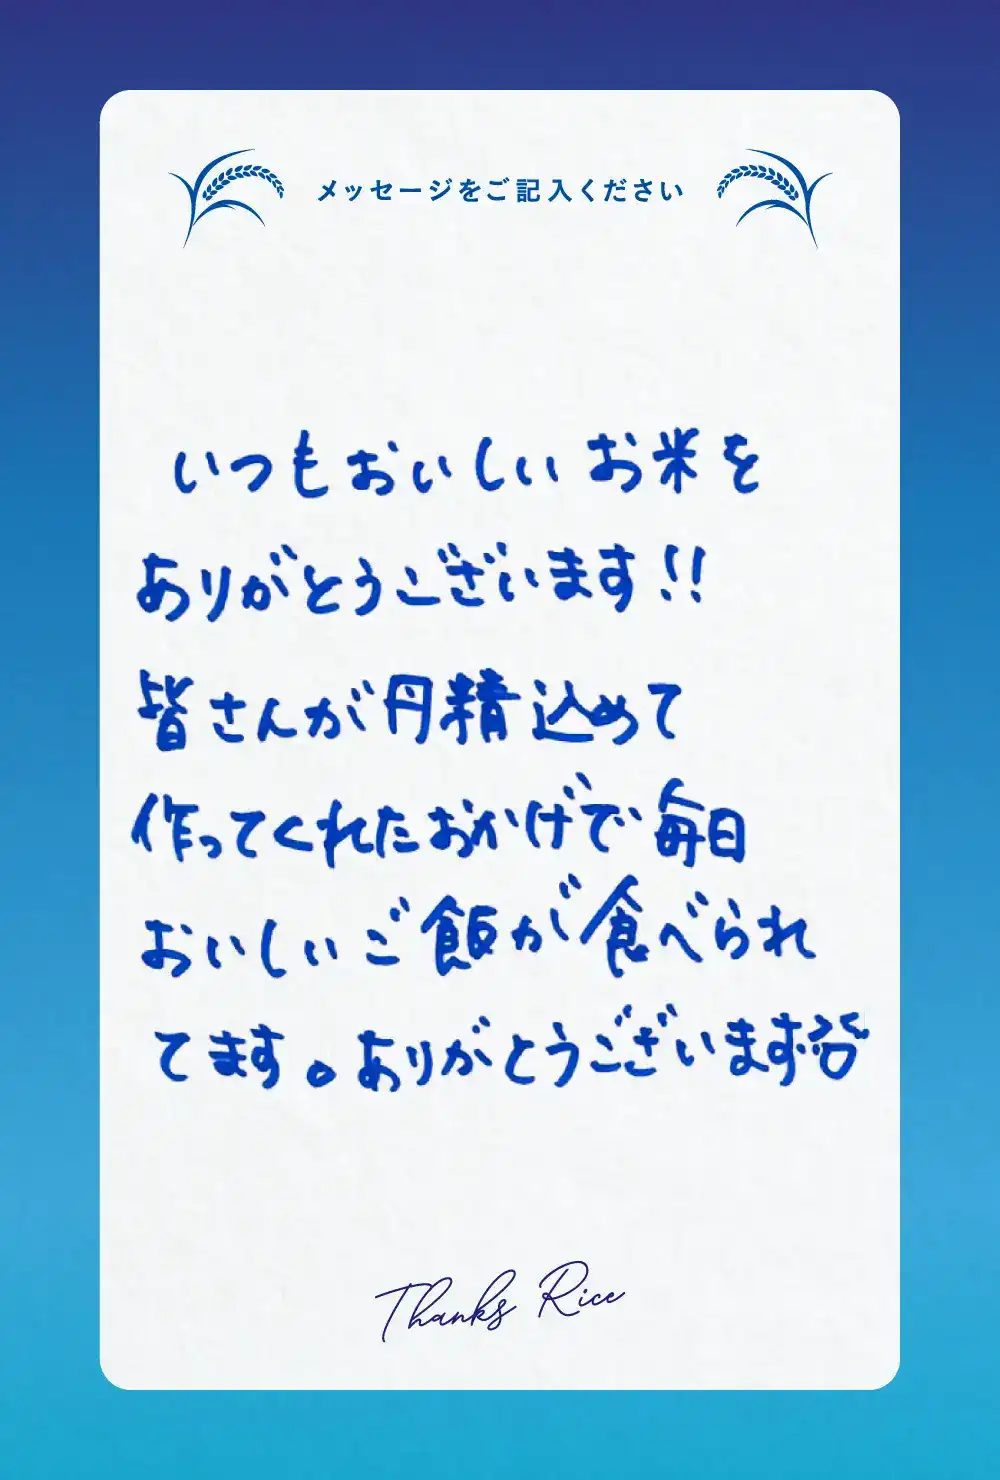 メッセージをご記入ください
いつもおいしいお米を
ありがとうございます!!
皆さんが丹精込めて
作ってくれたおかげで毎日
おいしいご飯が食べられ
てます。ありがとうございます
Thanks Rice